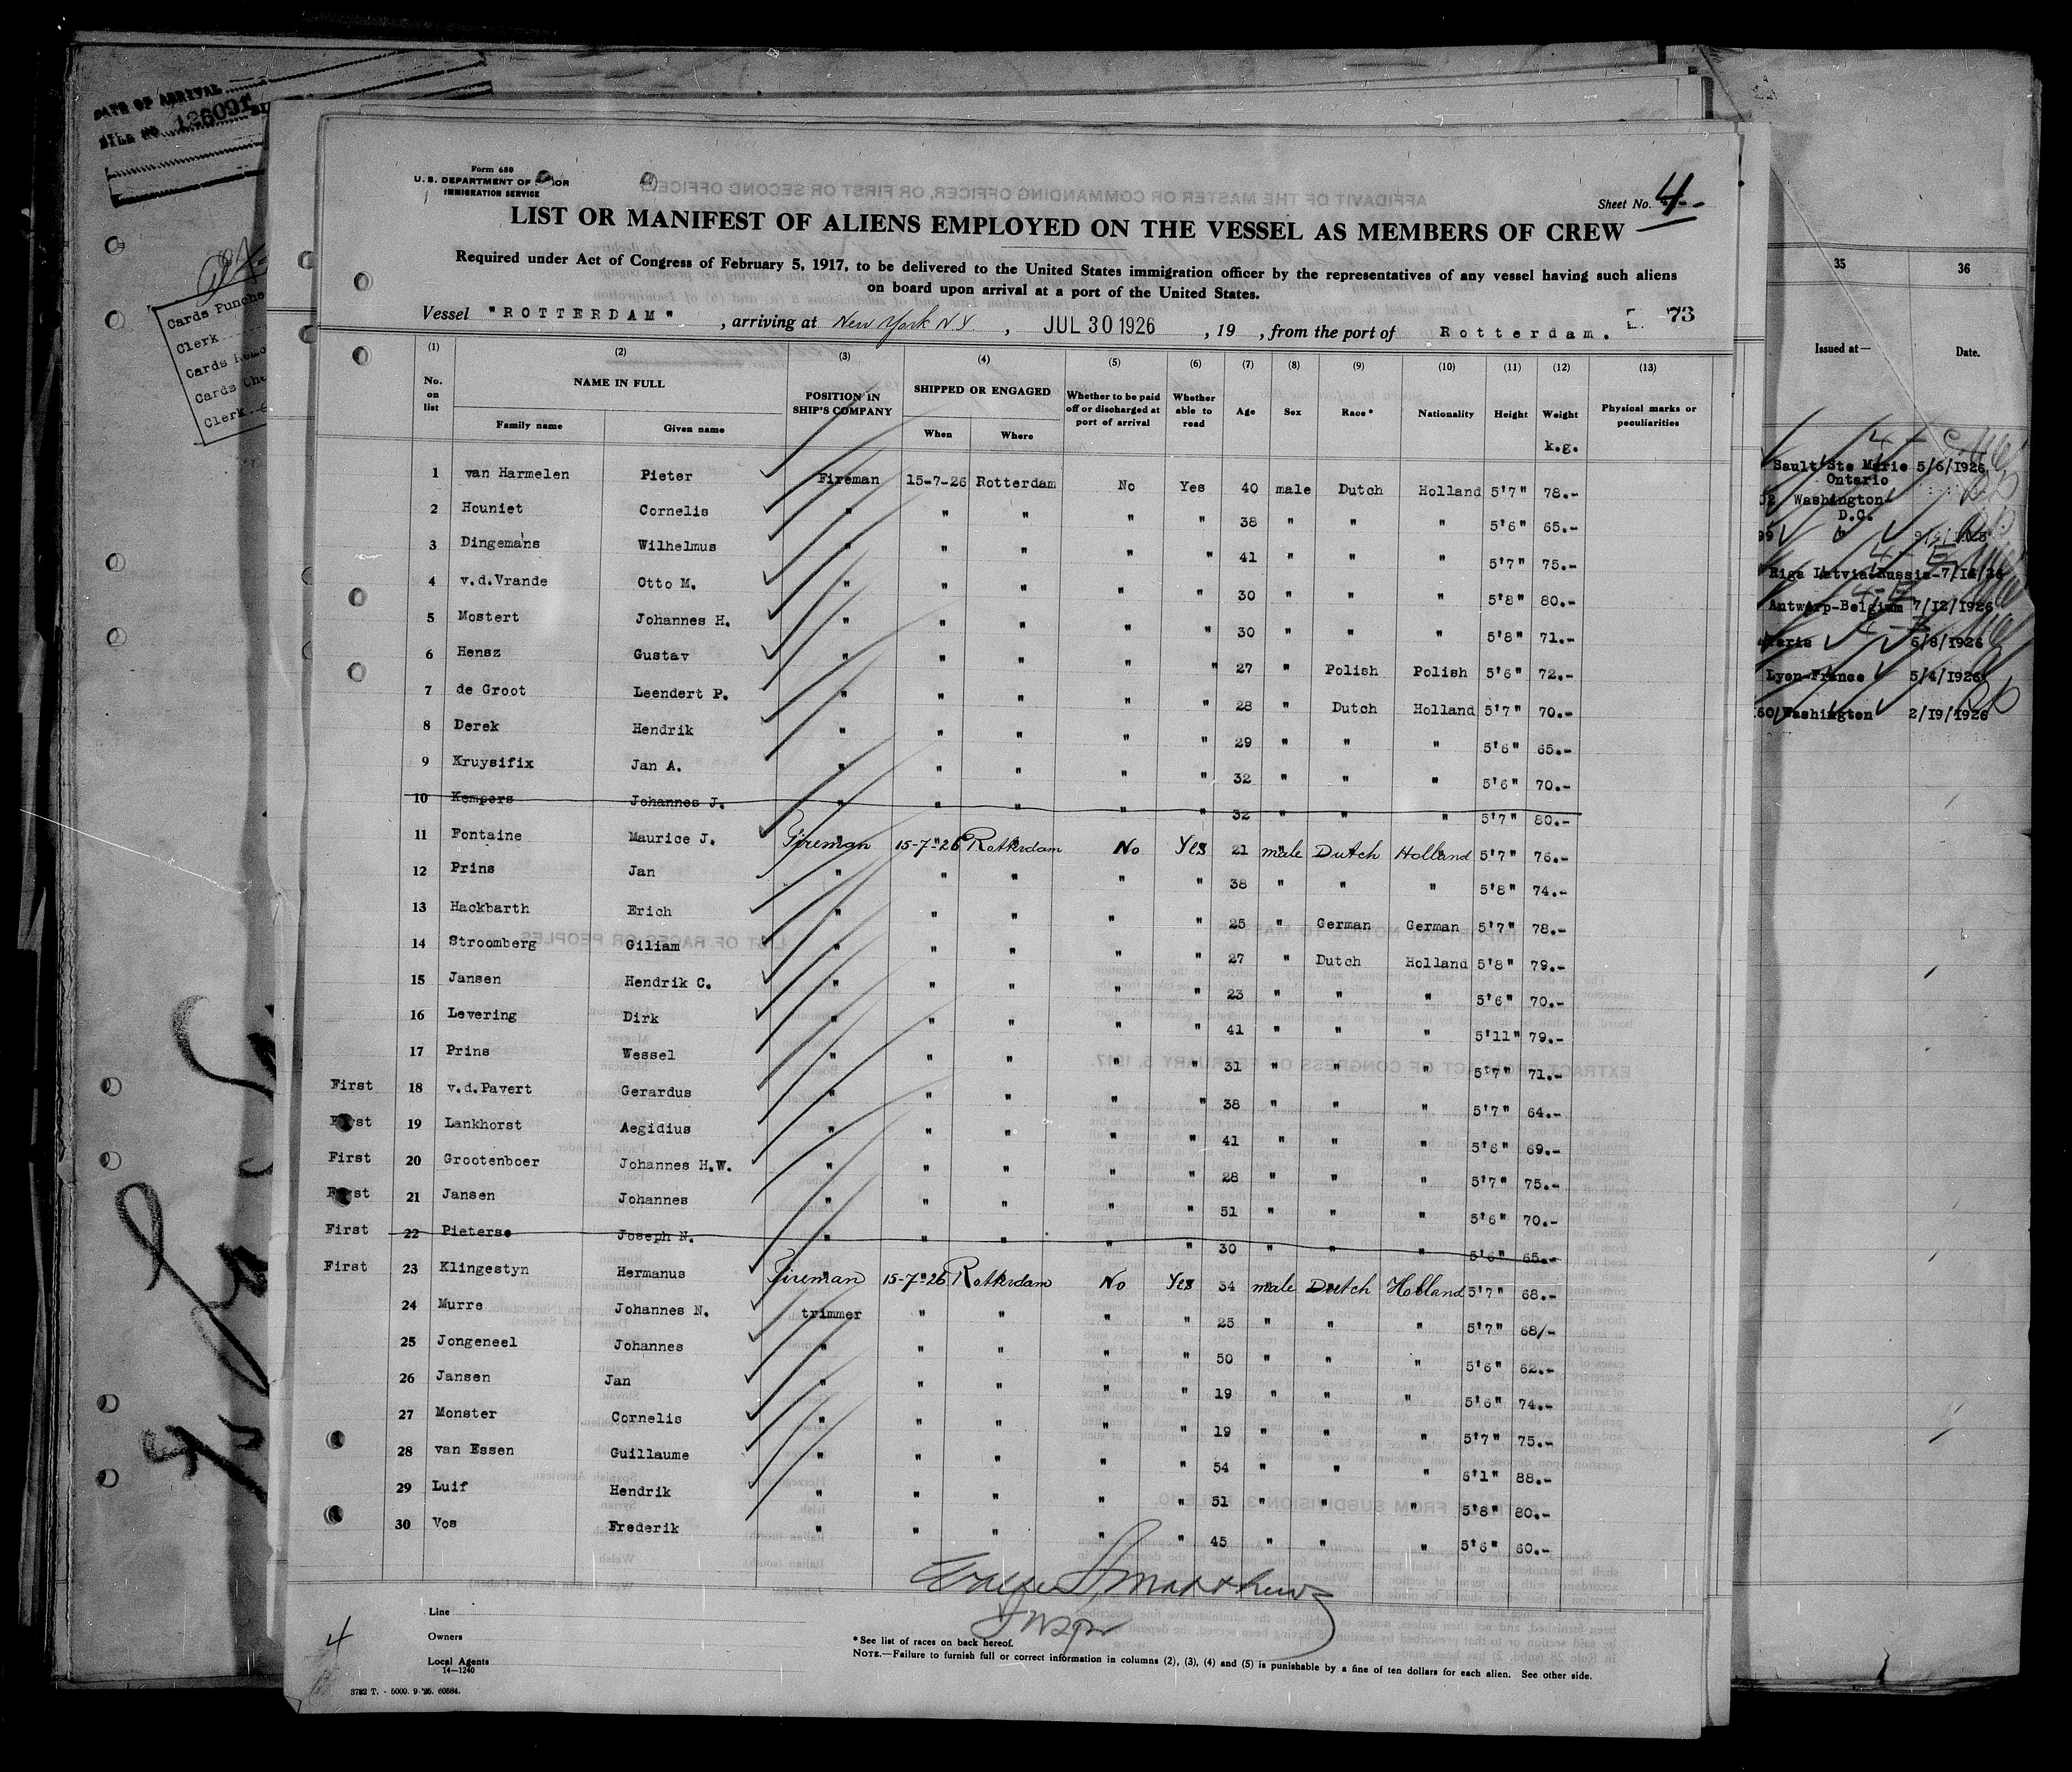 DATE OF ARRIVAL
FILE NO 126091
Cards Punche
Clerk
Cards Remo
Cards Che
Clerk
Form 680
U. S. DEPARTMENT OF
IMMIGRATION SERVICE
Sheet No. 4
LIST OR MANIFEST OF ALIENS EMPLOYED ON THE VESSEL AS MEMBERS OF CREW
Required under Act of Congress of February 5, 1917, to be delivered to the United States immigration officer by the representatives of any vessel having such aliens
on board upon arrival at a port of the United States.
Vessel "ROTTERDAM", arriving at New York N.Y, JUL 30 1926, 19 , from the port of Rotterdam. 73
(1) (2) (3) (4) (5) (6) (7) (8) (9) (10) (11) (12) (13)
No. on list NAME IN FULL Family name Given name POSITION IN SHIP'S COMPANY SHIPPED OR ENGAGED When Where Whether to be paid off or discharged at port of arrival Whether able to read Age Sex Race* Nationality Height Weight k.g. Physical marks or peculiarities
1 van Harmelen Pieter Fireman 15-7-26 Rotterdam No Yes 40 male Dutch Holland 5'7" 78.-
2 Houniet Cornelis " " " " " 38 " " " 5'6" 65.-
3 Dingemans Wilhelmus " " " " " 41 " " " 5'7" 75.-
4 v.d.Vrande Otto M. " " " " " 30 " " " 5'8" 80.-
5 Mostert Johannes H. " " " " " 30 " " " 5'8" 71.-
6 Hensz Gustav " " " " " 27 " Polish Polish 5'6" 72.-
7 de Groot Leendert P. " " " " " 28 " Dutch Holland 5'7" 70.-
8 Derek Hendrik " " " " " 29 " " " 5'6" 65.-
9 Kruysifix Jan A. " " " " " 32 " " " 5'6" 70.-
10 Kempers Johannes J. " " " " " 32 " " " 5'7" 80.-
11 Fontaine Maurice J. Fireman 15-7-26 Rotterdam No Yes 21 male Dutch Holland 5'7" 76.-
12 Prins Jan " " " " " 38 " " " 5'8" 74.-
13 Hackbarth Erich " " " " " 25 " German German 5'7" 78.-
14 Stroomberg Giliam " " " " " 27 " Dutch Holland 5'8" 79.-
15 Jansen Hendrik C. " " " " " 23 " " " 5'6" 70.-
16 Levering Dirk " " " " " 41 " " " 5'11" 79.-
17 Prins Wessel " " " " " 31 " " " 5'7" 71.-
First 18 v.d.Pavert Gerardus " " " " " 38 " " " 5'7" 64.-
First 19 Lankhorst Aegidius " " " " " 41 " " " 5'6" 69.-
First 20 Grootenboer Johannes H.W. " " " " " 28 " " " 5'7" 75.-
First 21 Jansen Johannes " " " " " 51 " " " 5'6" 70.-
First 22 Pieterse Joseph N. " " " " " 30 " " " 5'6" 65.-
First 23 Klingestyn Hermanus Fireman 15-7-26 Rotterdam No Yes 34 male Dutch Holland 5'7" 68.-
24 Murre Johannes N. trimmer " " " " 25 " " " 5'7" 68/-
25 Jongeneel Johannes " " " " " 50 " " " 5'6" 62.-
26 Jansen Jan " " " " " 19 " " " 5'6" 74.-
27 Monster Cornelis " " " " " 19 " " " 5'7" 75.-
28 van Essen Guillaume " " " " " 54 " " " 6'1" 88.-
29 Luif Hendrik " " " " " 51 " " " 5'8" 80.-
30 Vos Frederik " " " " " 45 " " " 5'6" 60.-
Matthews
Insp
Line
Owners
Local Agents
14—1240
*See list of races on back hereof.
NOTE.—Failure to furnish full or correct information in columns (2), (3), (4) and (5) is punishable by a fine of ten dollars for each alien. See other side.
4
3782 T. - 5000. 9-'25. 60584.
35 36
Issued at— Date.
Sault Ste Marie 5/6/1926
Ontario
Washington
D.C.
Riga Latvia-Russia-
Antwerp-Belgium 7/12/1926
Paris 6/8/1926
Lyon-France 5/4/1926
60 Washington 2/19/1926